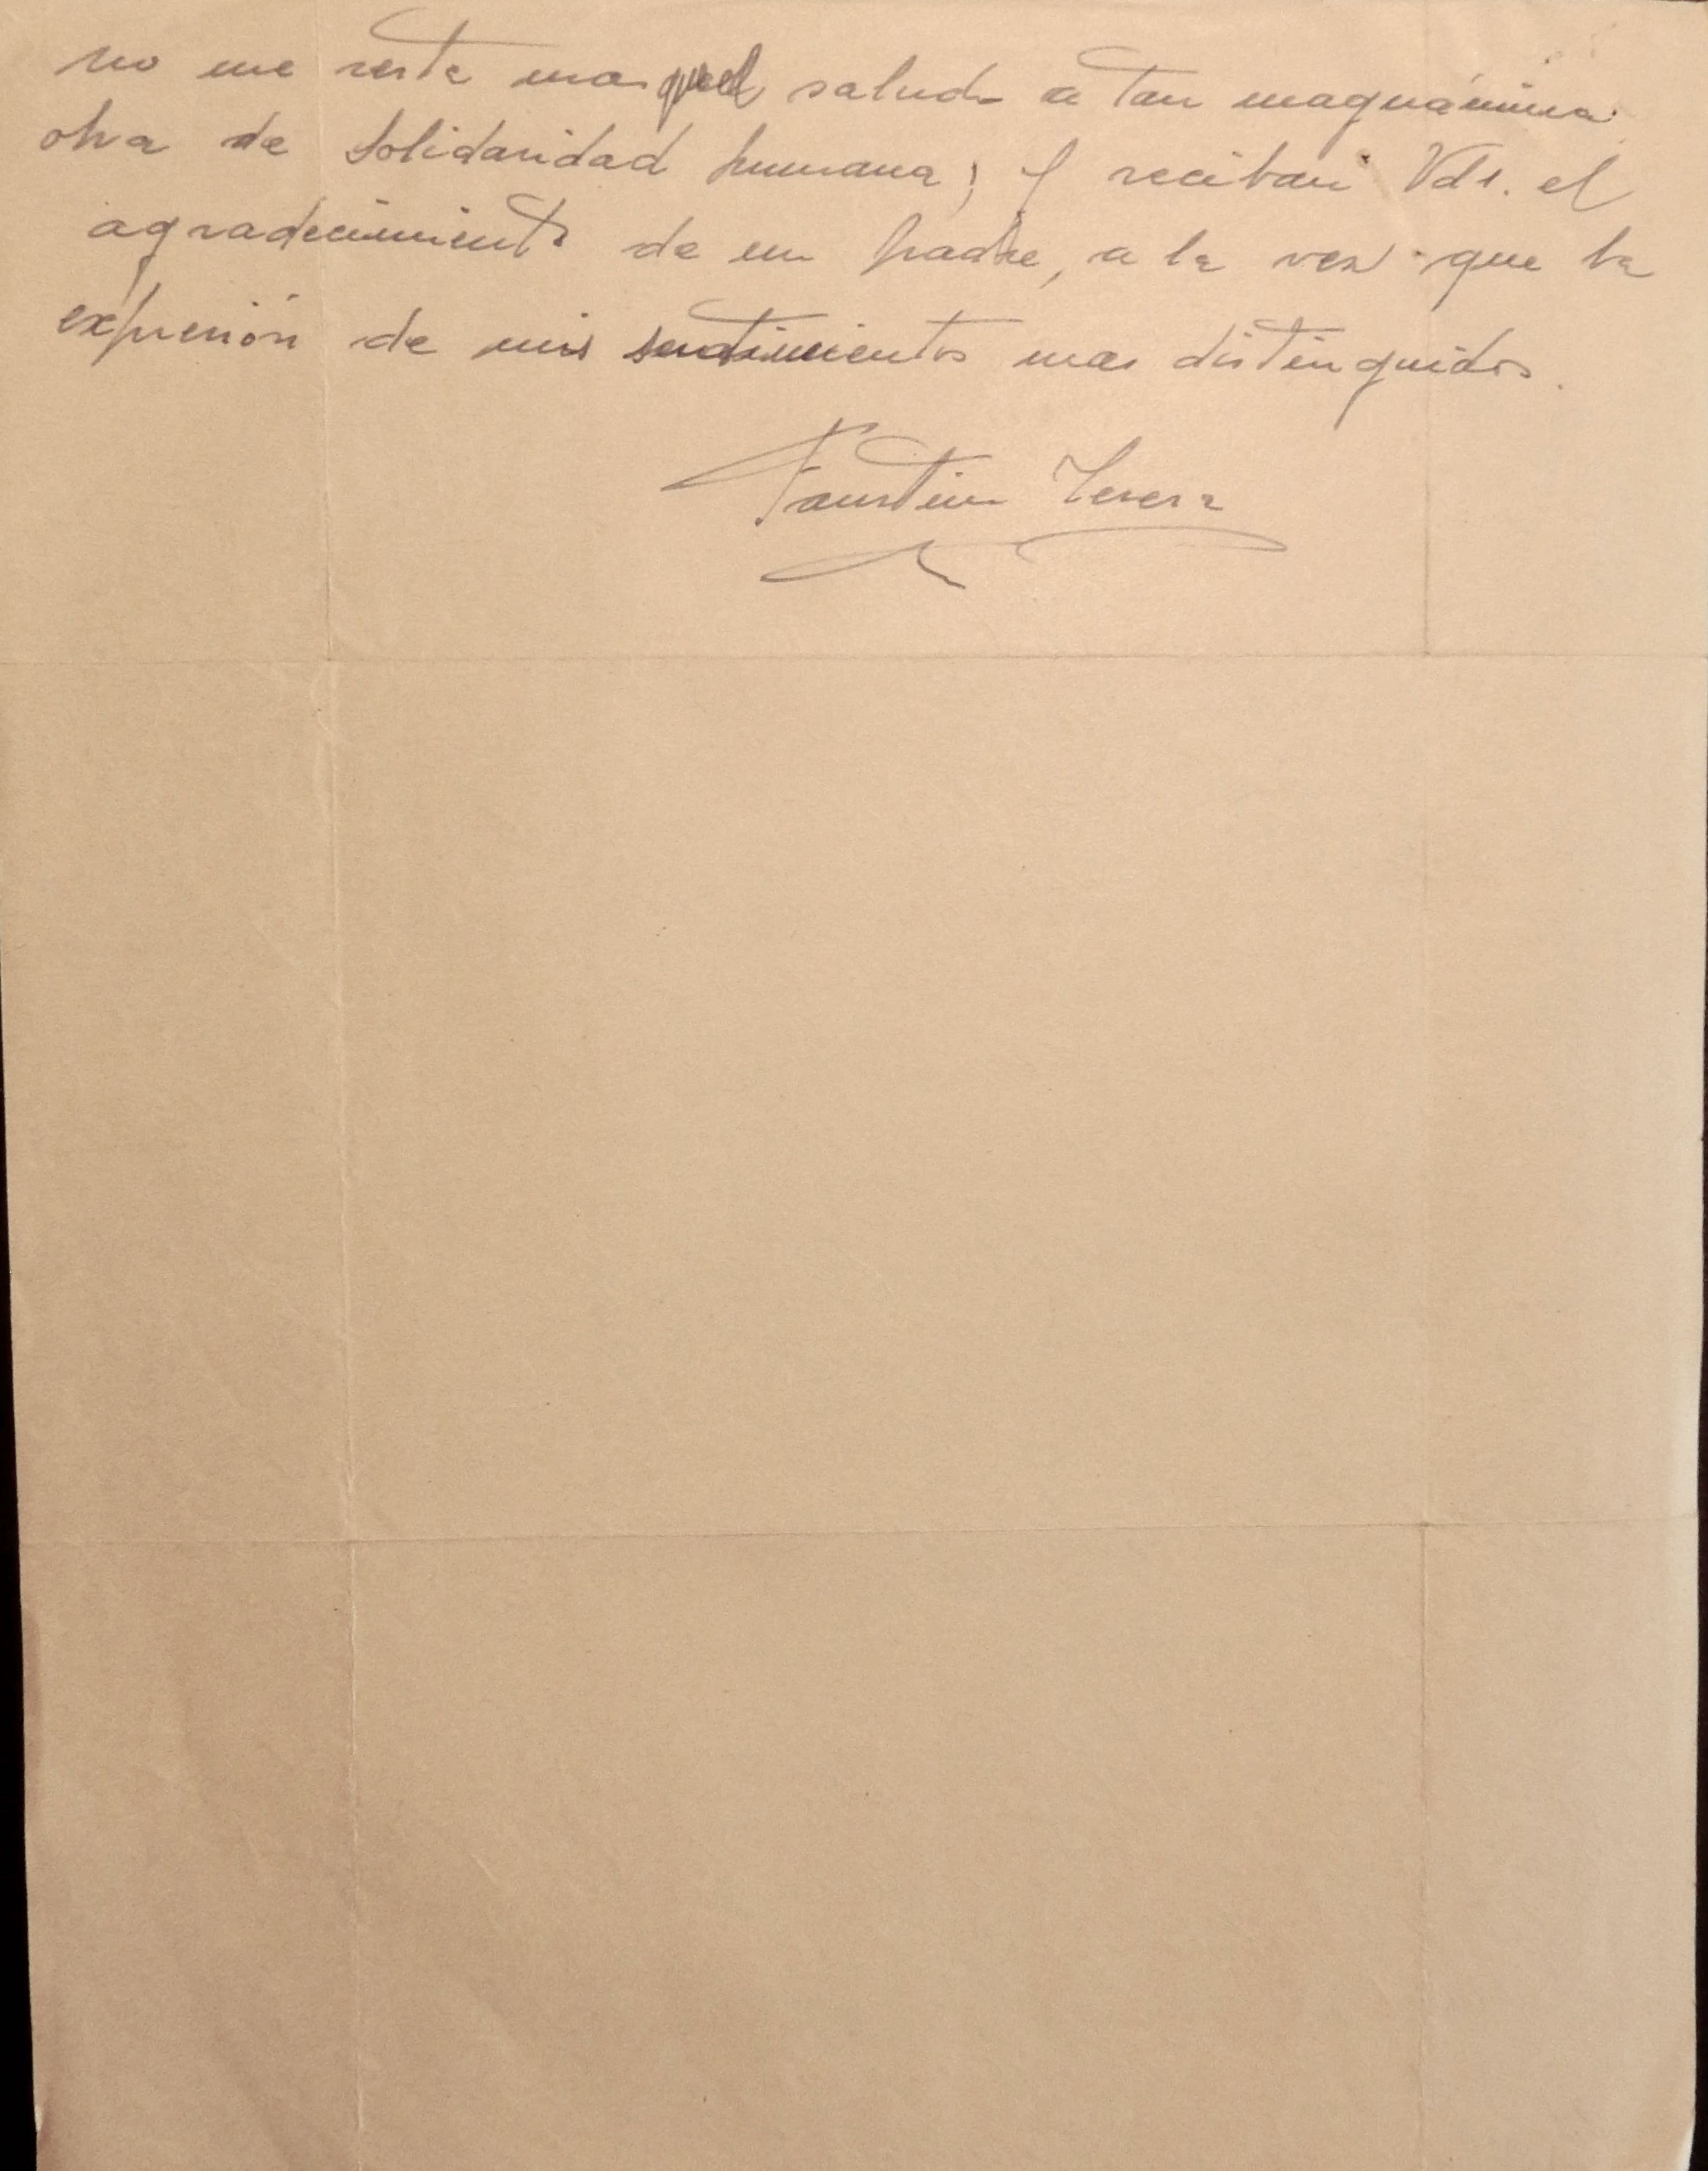 no me resta mas que el saludo a tan magnánima
obra de solidaridad humana; y reciban Vds. el
agradecimiento de un padre, a la vez que la
expresión de mis sentimientos mas distinguidos.
Faustino